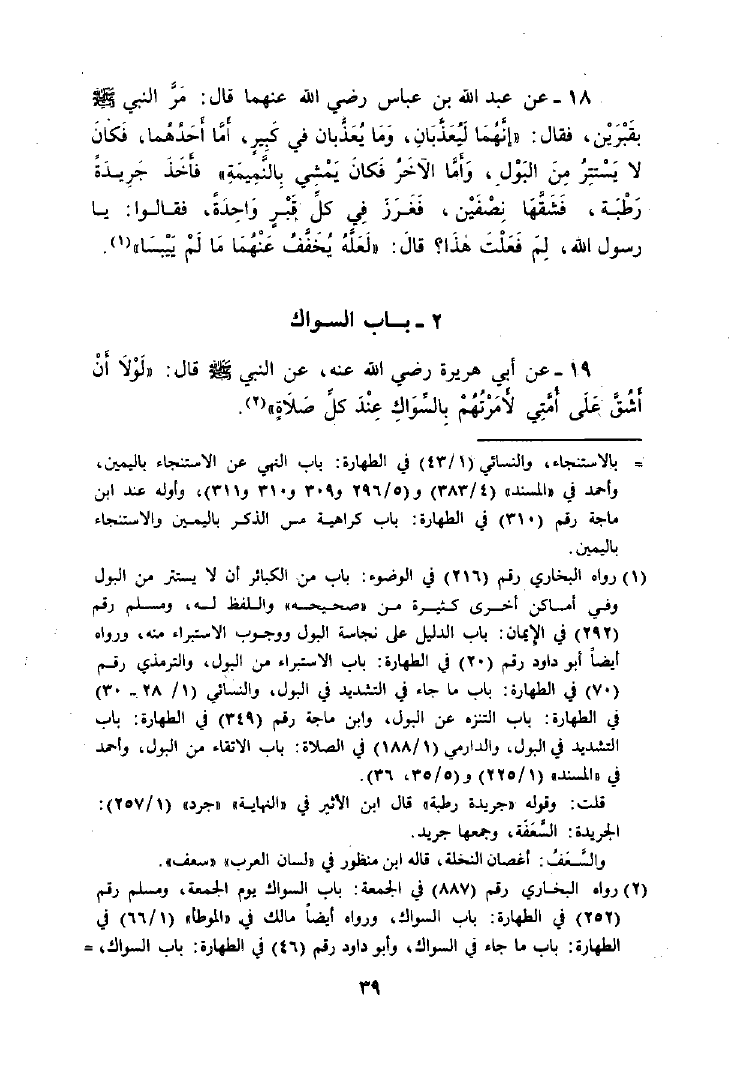 ١٨ ـ عن عبد الله بن عباس رضي الله عنهما قال: مَرَّ النبي ﷺ
بِقَبْرَيْن، فقال: «إنَّهُمَا لَيُعَذَّبَانِ، وَمَا يُعَذَّبان في كَبِيرٍ، أَمَّا أَحَدُهُما، فَكَانَ
لا يَسْتَتِرُ مِنَ البَوْلِ، وَأَمَّا الآخَرُ فَكانَ يَمْشِي بِالنَّمِيمَةِ» فَأَخَذَ جَرِيدَةً
رَطْبَة، فَشَقَّهَا نِصْفَيْن، فَغَرَزَ فِي كلِّ قَبْرٍ وَاحِدَةً، فقـالـوا: يـا
رسول الله، لِمَ فَعَلْتَ هٰذا؟ قالَ: «لَعَلَّهُ يُخَفَّفُ عَنْهُمَا مَا لَمْ يَيْبَسَا»(١).
٢ ـ بـاب السـواك
١٩ ـ عن أبي هريرة رضي الله عنه، عن النبي ﷺ قال: «لَوْلَا أَنْ
أَشُقَّ عَلَى أُمَّتِي لأَمَرْتُهُمْ بِالسِّوَاكِ عِنْدَ كلِّ صَلَاةٍ»(٢).
= بالاستنجاء، والنسائي (٤٣/١) في الطهارة: باب النهي عن الاستنجاء باليمين،
وأحمد في «المسند» (٣٨٣/٤) و(٢٩٦/٥ و٣٠٩ و٣١٠ و٣١١)، وأوله عند ابن
ماجة رقم (٣١٠) في الطهارة: باب كراهية مس الذكر باليمين والاستنجاء
باليمين.
(١) رواه البخاري رقم (٢١٦) في الوضوء: باب من الكبائر أن لا يستتر من البول
وفي أماكن أخرى كثيرة من «صحيحه» واللفظ له، ومسلم رقم
(٢٩٢) في الإيمان: باب الدليل على نجاسة البول ووجوب الاستبراء منه، ورواه
أيضاً أبو داود رقم (٢٠) في الطهارة: باب الاستبراء من البول، والترمذي رقم
(٧٠) في الطهارة: باب ما جاء في التشديد في البول، والنسائي (١/ ٢٨ ـ ٣٠)
في الطهارة: باب التنزه عن البول، وابن ماجة رقم (٣٤٩) في الطهارة: باب
التشديد في البول، والدارمي (١٨٨/١) في الصلاة: باب الاتقاء من البول، وأحمد
في «المسند» (٢٢٥/١) و(٣٥/٥، ٣٦).
قلت: وقوله «جريدة رطبة» قال ابن الأثير في «النهاية» «جرد» (٢٥٧/١):
الجريدة: السَّعَفَة، وجمعها جريد.
والسَّعَفُ: أغصان النخلة، قاله ابن منظور في «لسان العرب» «سعف».
(٢) رواه البخاري رقم (٨٨٧) في الجمعة: باب السواك يوم الجمعة، ومسلم رقم
(٢٥٢) في الطهارة: باب السواك، ورواه أيضاً مالك في «الموطأ» (٦٦/١) في
الطهارة: باب ما جاء في السواك، وأبو داود رقم (٤٦) في الطهارة: باب السواك، =
٣٩